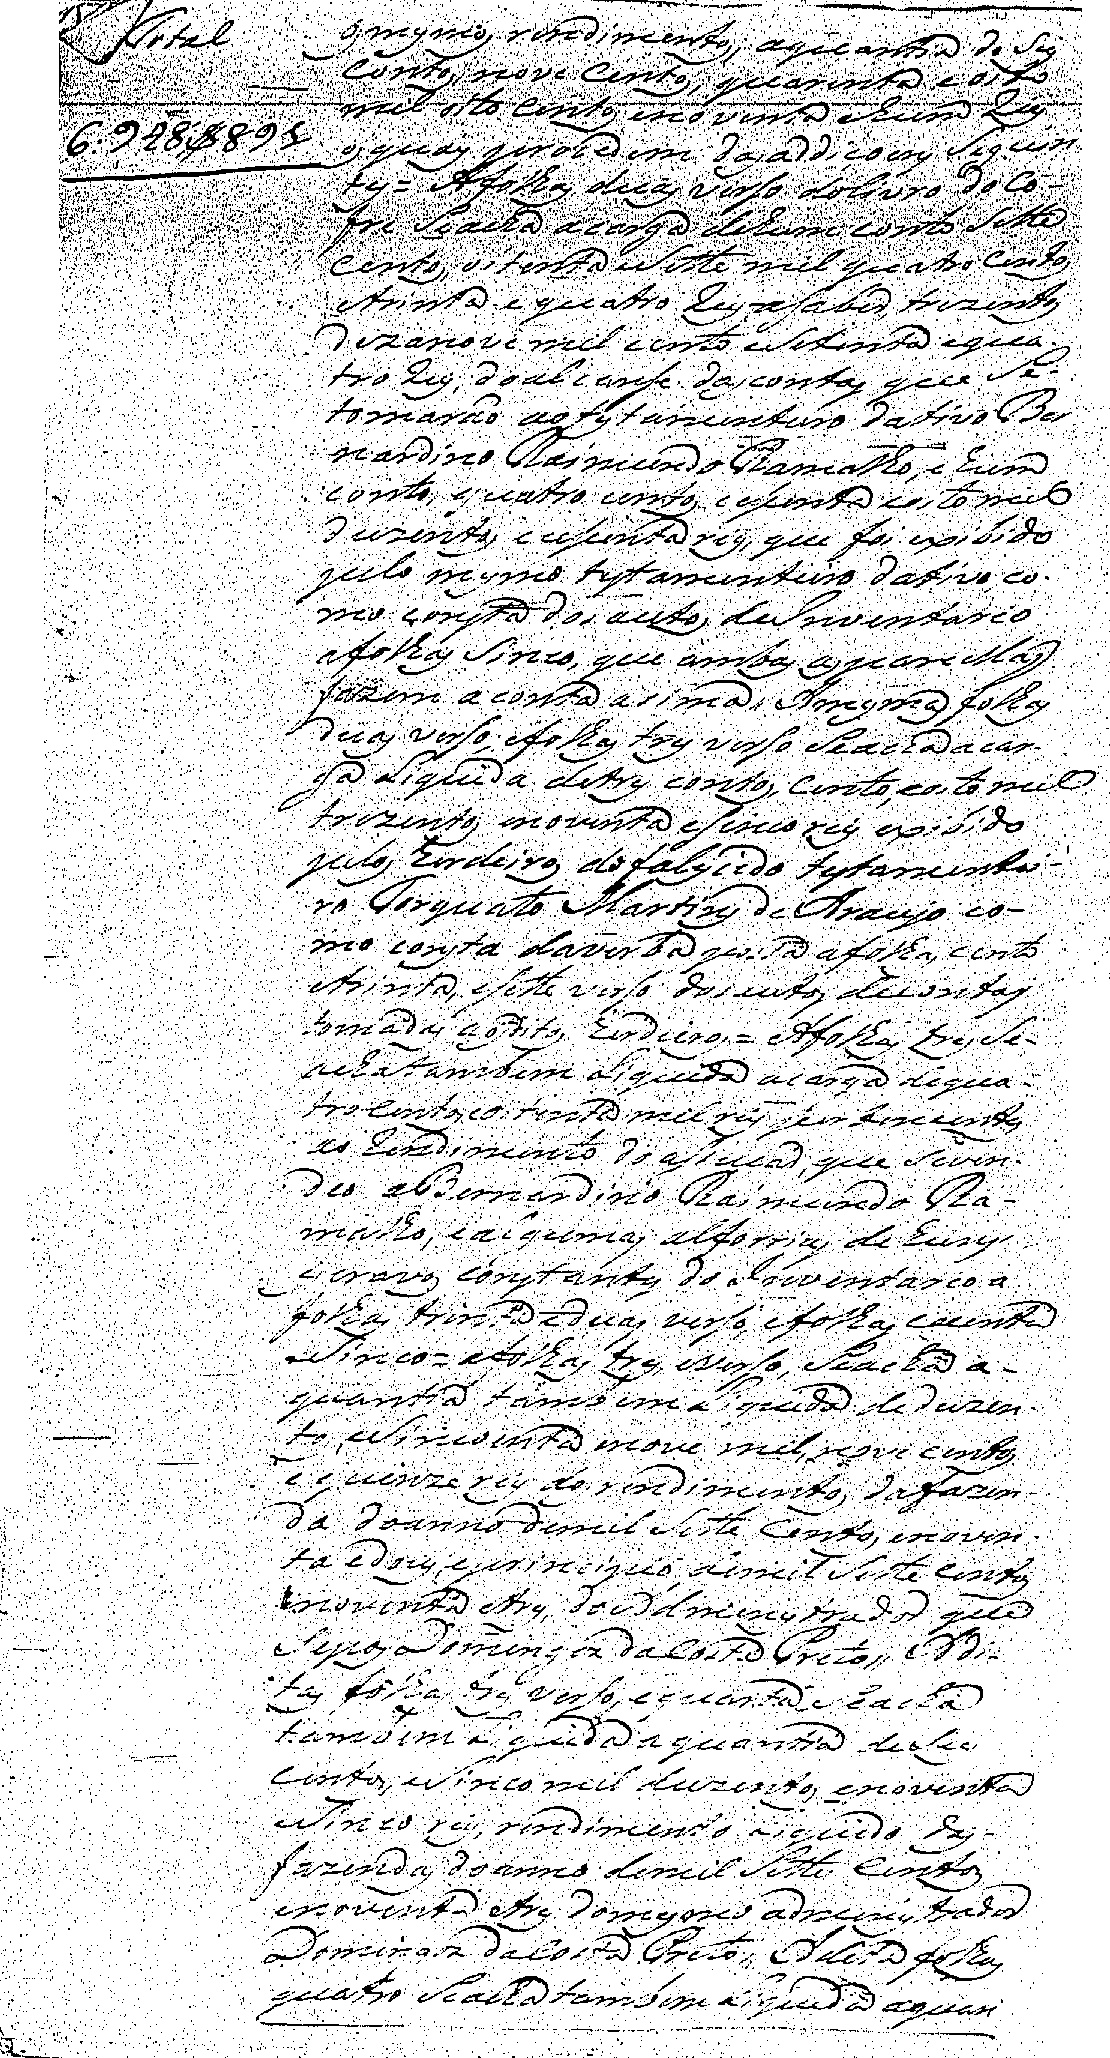 Total
6.948$891
os mesmos rendimentos, aquantia de Seis
Contos, nove Centos, quarenta e oito
mil oito Centos, enoventa ehum Reis
os quaes procedem das addicoens Seguin
tes = Afolhas duas verso do Livro do Co-
fre Seacha acarga dehum conto Sette
Centos, oitenta eSette mil quatro Centos,
etrinta e quatro Reis = asaber, trezentos,
dezanove mil cento eSetenta equa-
tro Reis, do alcanse das contas que Se-
tomarão aotestamenteiro dativo Ber
nardino Raimundo Ramalho, e hum
conto, quatro centos, esesenta eoito mil
duzentos, esesenta reis, que foi exibido
pelo mesmo testamenteiro dativo, co-
mo consta dos autos, deInventario
afolhas Sinco, que ambas as parcellas
fazem a conta asima. Asmesmas folhas
duas verso, efolhas tres verso Seacha acar-
ga Liquida detres contos, Cento, eoito mil
trezentos, enoventa esinco reis exibido
pelos herdeiros do falescido testamentei-
ro Torquato Martins de Araujo co-
mo consta daverba posta afolhas, cento
etrinta, esette verso dos autos, decontas
tomadas aoditos, herdeiros = Afolhas tres Se-
acha tambem aliquida acarga dequa-
tro Centos, eoitenta mil reis pertencentes
ao Rendimento do asucar, que Seven-
deo aBernardino Raimundo Ra-
malho, ealgumas alforrias de huns
escravos constantes do Inventario a
folhas trinta eduas verso, efolhas cuenta
eSinco = afolhas tres, everso, Seacha a-
quantia tambem aliquida de duzen-
tos, eSincoenta enove mil, nove centos,
e quinze reis do rendimentos, da fazen-
da doanno demil Sette Centos, enoven-
ta edous, eprincipio, demil Sette Centos
enoventa etres, do Administrador que
Sepos Domingos da Costa Preto,, Adi-
tas folhas tres verso, equarta Seacha
tambem aliquida aquantia deSeis
Centos, eSinco mil duzentos, enoventa
eSinco reis, rendimento Liquido das-
fazendas doanno demil Sette Centos
enoventa etres domesmo administrador
Domingos da Costa Preto,, Adita folhas
quatro Seacha tambem aliquida aquan